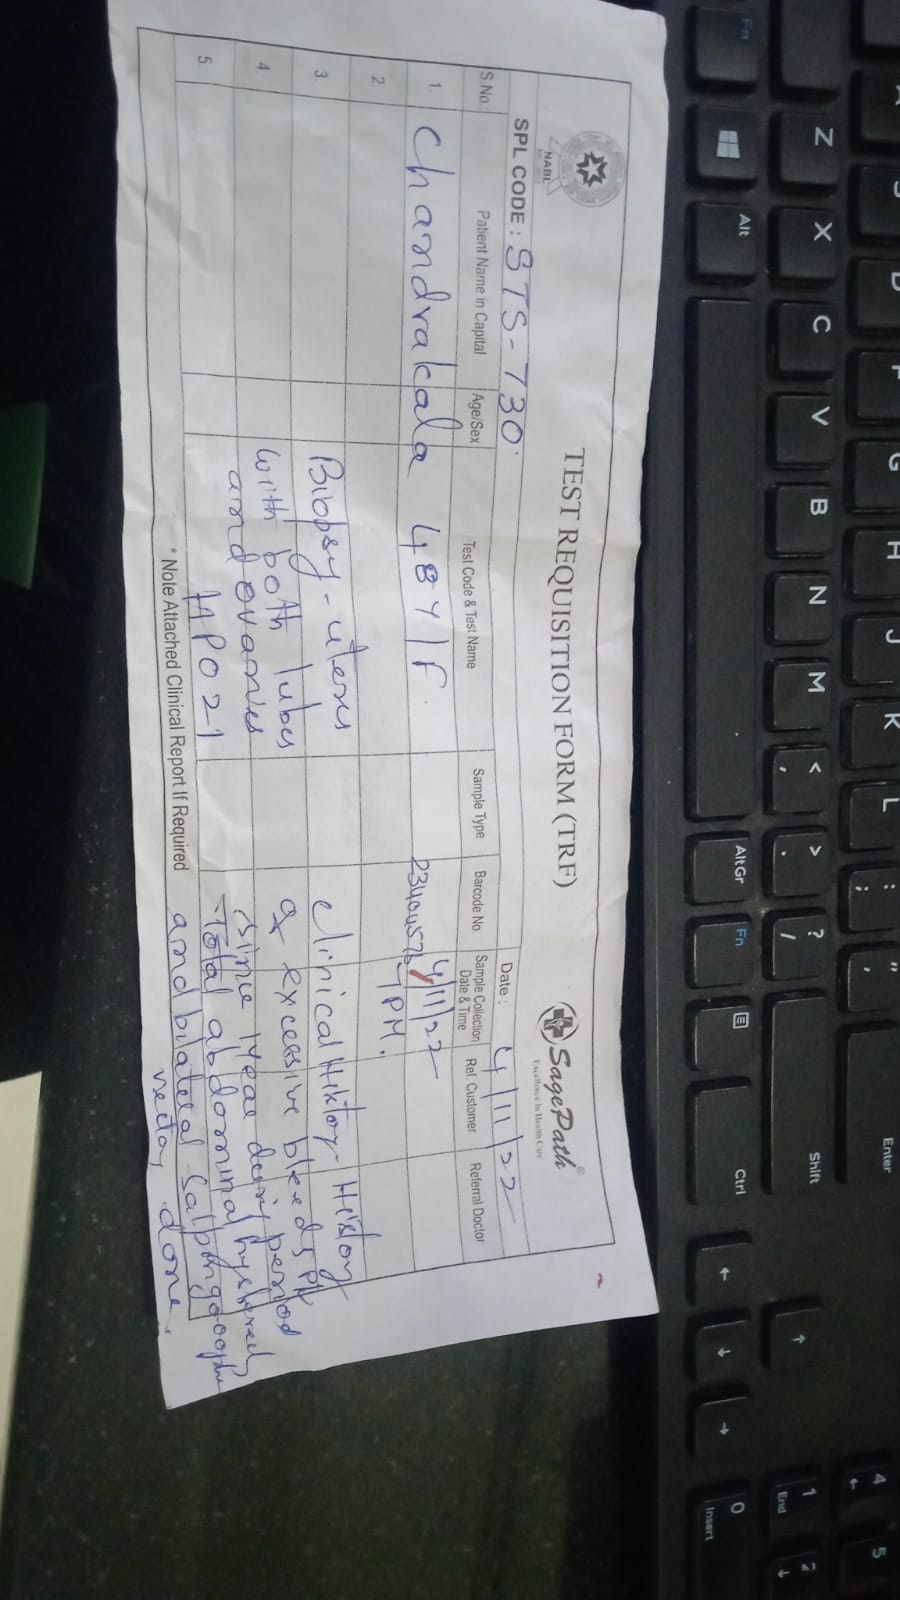 NABL
TEST REQUISITION FORM (TRF)
SagePath®
Excellence In Health Care
SPL CODE : STS-730.
Date : 4/11/22
S.No
Patient Name in Capital
Age/Sex
Test Code & Test Name
Sample Type
Barcode No.
Sample Collection Date & Time
Ref. Customer
Referral Doctor
1. Chandrakala 48Y/F.
4/11/22
7 PM.
2
3. Biopsy - uterus
4. with both tubes
and ovaries
5. HP021
Clinical History - History
of excessive bleeds
since 1 year during period
Total abdominal
and bilateral
done.
* Note Attached Clinical Report If Required
Fn
Alt
Z
X
C
V
B
N
M
< ,
> .
? /
Shift
AltGr
Fn
Ctrl
Enter
G
H
J
K
L
: ;
" '
0
Insert
1
End
2
4
5